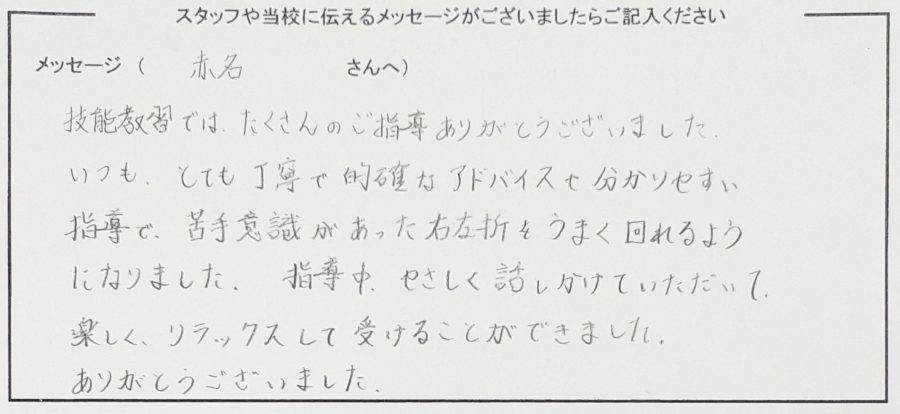 スタッフや当校に伝えるメッセージがございましたらご記入ください
メッセージ ( 赤名 さんへ)
技能教習では、たくさんのご指導ありがとうございました。
いつも、とても丁寧で的確なアドバイスや分かりやすい
指導で、苦手意識があった右左折をうまく回れるよう
になりました。 指導中、やさしく話しかけていただいて、
楽しく、リラックスして受けることができました。
ありがとうございました。